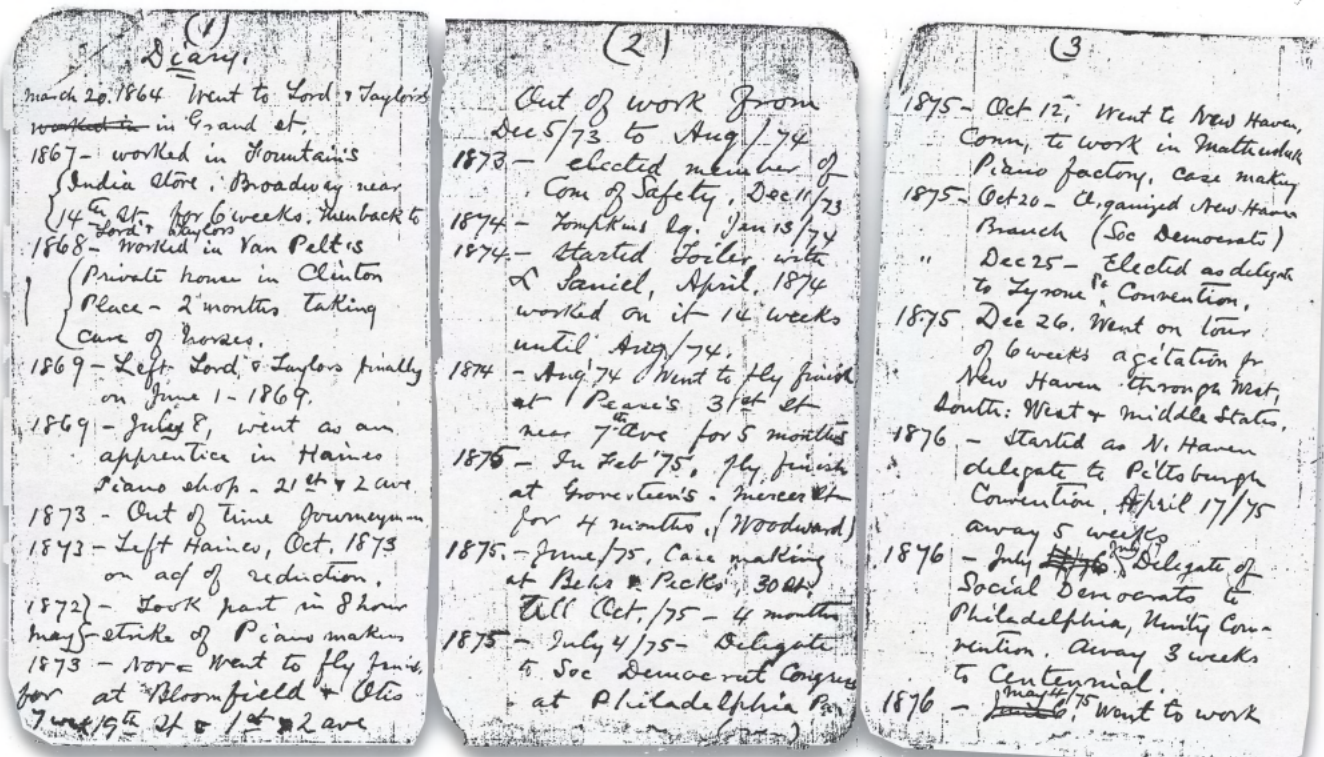 (1)
Diary.
March 20. 1864 Went to Lord & Taylors
worked in in Grand st.
1867 - worked in Fountain's
India Store, Broadway near
14th St. for 6 weeks. then back to
Lord & Taylors
1868 - Worked in Van Pelt's
Private house in Clinton
Place - 2 months taking
care of horses.
1869 - Left Lord & Taylors finally
on June 1 - 1869.
1869 - July 8, went as an
apprentice in Haines
Piano shop - 21st & 2 ave
1873 - Out of time Journeyman
1873 - Left Haines, Oct. 1873
on ac of reduction.
1872 - Took part in 8 hour
May strike of Piano makers
1873 - Nov = Went to fly finish
for at Bloomfield & Otis
7 wks 19th St & 1st & 2 ave
(2)
Out of work from
Dec 5/73 to Aug/74
1873 - elected member of
Com of Safety, Dec 11/73
1874 - Tompkins Sq. Jan 13/74
1874 - Started Toiler with
L Saniel, April, 1874
worked on it 14 weeks
until Aug/74.
1874 - Aug '74 Went to fly finish
at Pease's 31st St
near 7th Ave for 5 months
1875 - In Feb '75, fly finish
at Grovesteen's - Mercer St
for 4 months, (Woodward)
1875. - June/75, Case making
at Behr & Pecks, 30 St.
Till Oct./75 - 4 months
1875 - July 4/75 - Delegate
to Soc Democrat Congress
at Philadelphia Pa
(3
1875 - Oct 12, Went to New Haven,
Conn, to work in Mathushek
Piano factory, case making
1875 - Oct 20 - Organized New Haven
Branch (Soc Democrats)
" Dec 25 - Elected as delegate
to Tyrone Pa Convention.
1875 Dec 26. Went on tour
of 6 weeks agitation fr
New Haven through West,
South: West & middle States.
1876 - Started as N. Haven
delegate to Pittsburgh
Convention, April 17/75
away 5 weeks
1876 - July Delegate of
Social Democrats to
Philadelphia, Unity Con-
vention. Away 3 weeks
to Centennial.
1876 - May 4/75 Went to work